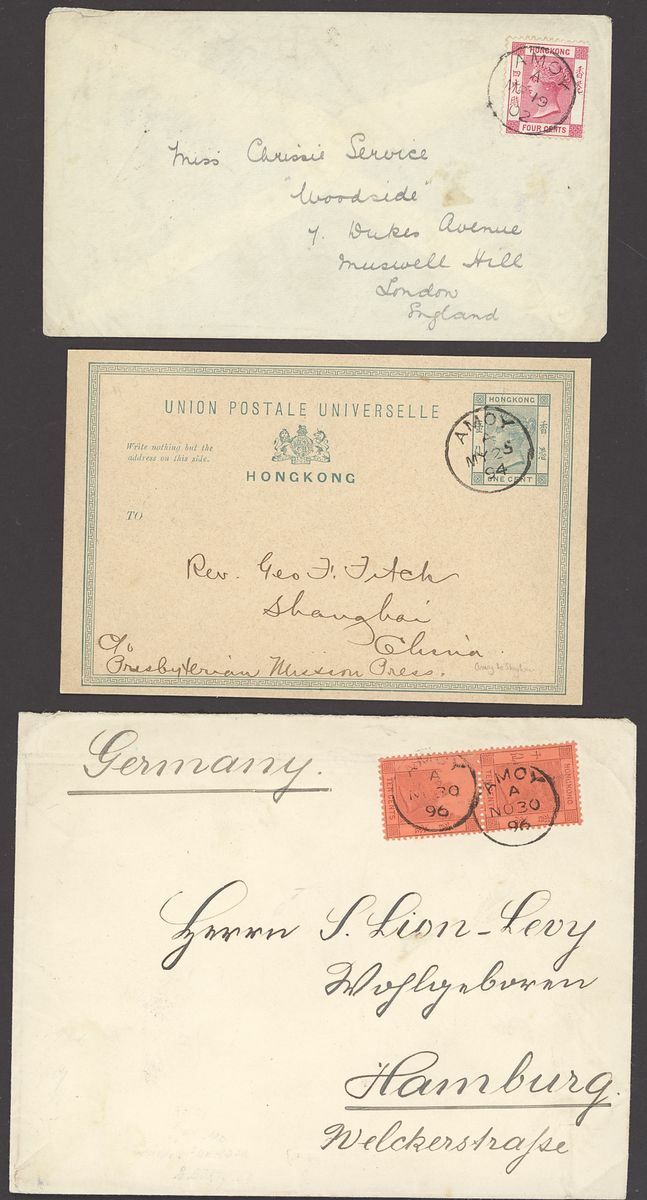 HONGKONG
香港
四先時
FOUR CENTS
AMOY
A
19
02
Miss Chrissie Service
"Woodside"
7. Dukes Avenue
Muswell Hill
London
England
UNION POSTALE UNIVERSELLE
Write nothing but the
address on this side.
HONGKONG
TO
HONGKONG
香港
ONE CENT
AMOY
A
MY 25
94
Rev. Geo F. Fitch
Shanghai
China.
c/o
Presbyterian Mission Press.
Amoy to Shanghai
Germany.
TEN CENTS
HONGKONG
AMOY
A
NO 30
96
AMOY
A
NO 30
96
Herrn S. Lion-Levy
Wohlgeboren
Hamburg.
Welckerstraße